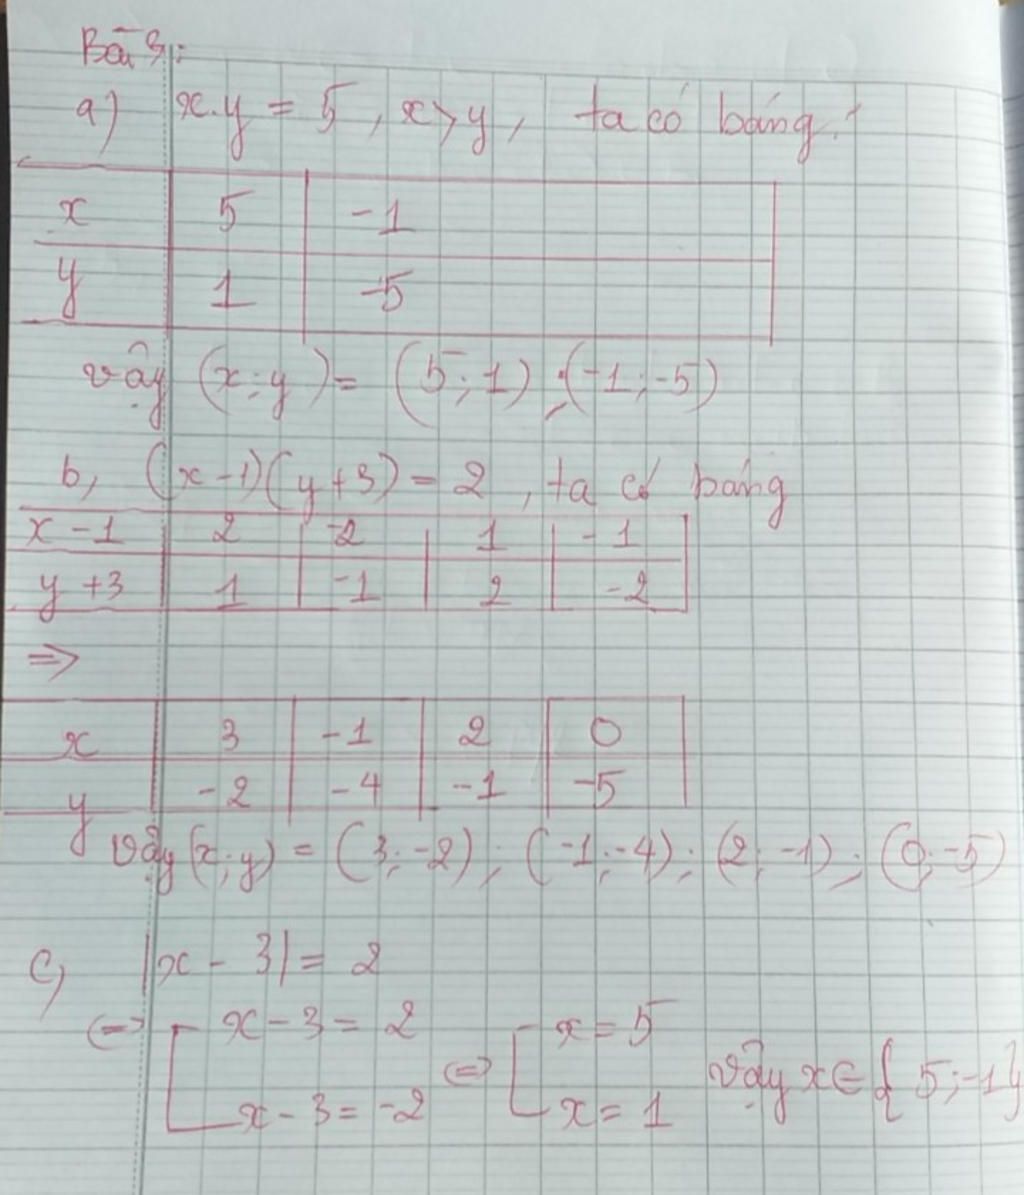 Bài 3:
a) x.y = 5, x>y, ta có bảng:
x 5 -1
y 1 -5
vậy (x;y) = (5;1);(-1;-5)
b, (x-1)(y+3) = 2, ta có bảng
x-1 2 -2 1 -1
y+3 1 -1 2 -2
=>
x 3 -1 2 0
y -2 -4 -1 -5
Vậy (x;y) = (3;-2);(-1;-4);(2;-1);(0;-5)
c, |x-3| = 2
<=> [ x-3 = 2 <=> [ x = 5 vậy x ∈ {5;-1}
x-3 = -2 x = 1